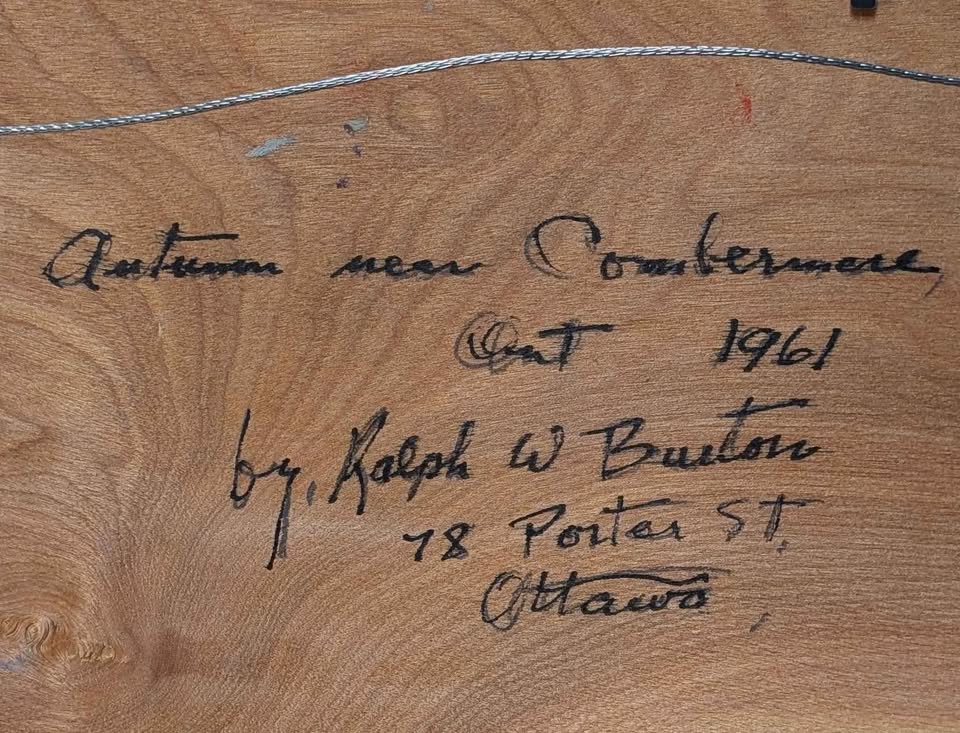 Autumn near Combermere,
Ont 1961
by, Ralph W Burton
78 Porter St.
Ottawa,